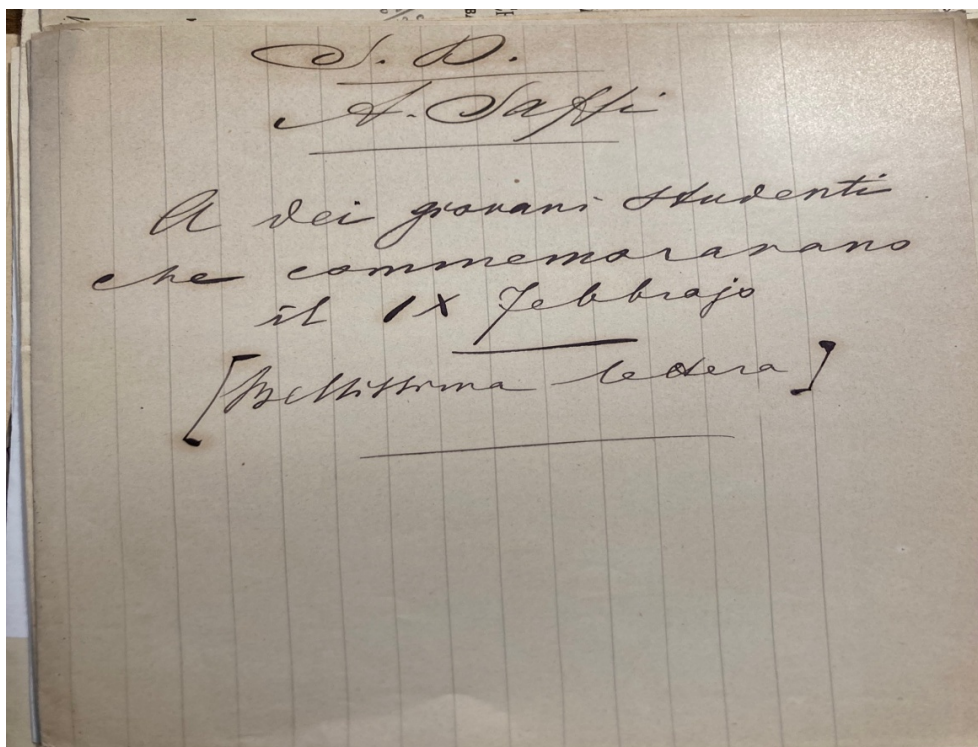 S. D.
A. Saffi
A dei giovani studenti
che commemoravano
il IX Febbrajo
[Bellissima lettera]